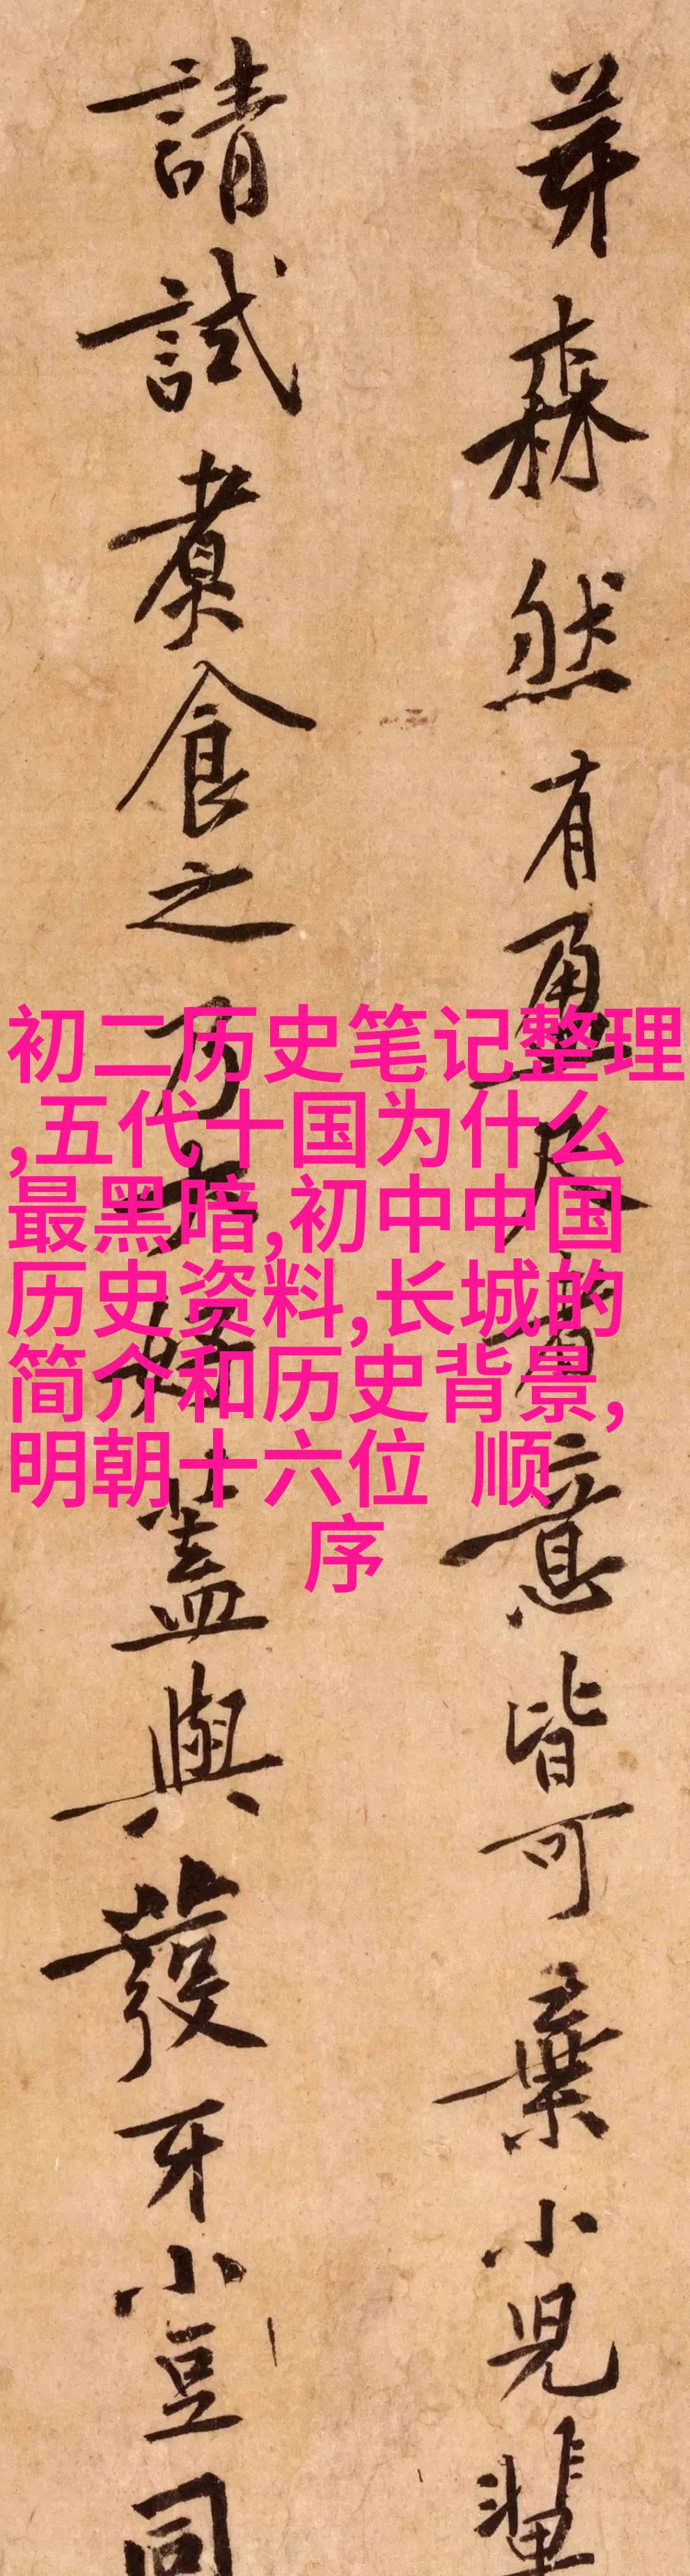 芽森然有盈尺者意皆可棄小児輩
請試煮食之乃大好蓋與發牙小豆同
初二历史笔记整理
,五代十国为什么
最黑暗,初中中国
历史资料,长城的
简介和历史背景,
明朝十六位 顺
序